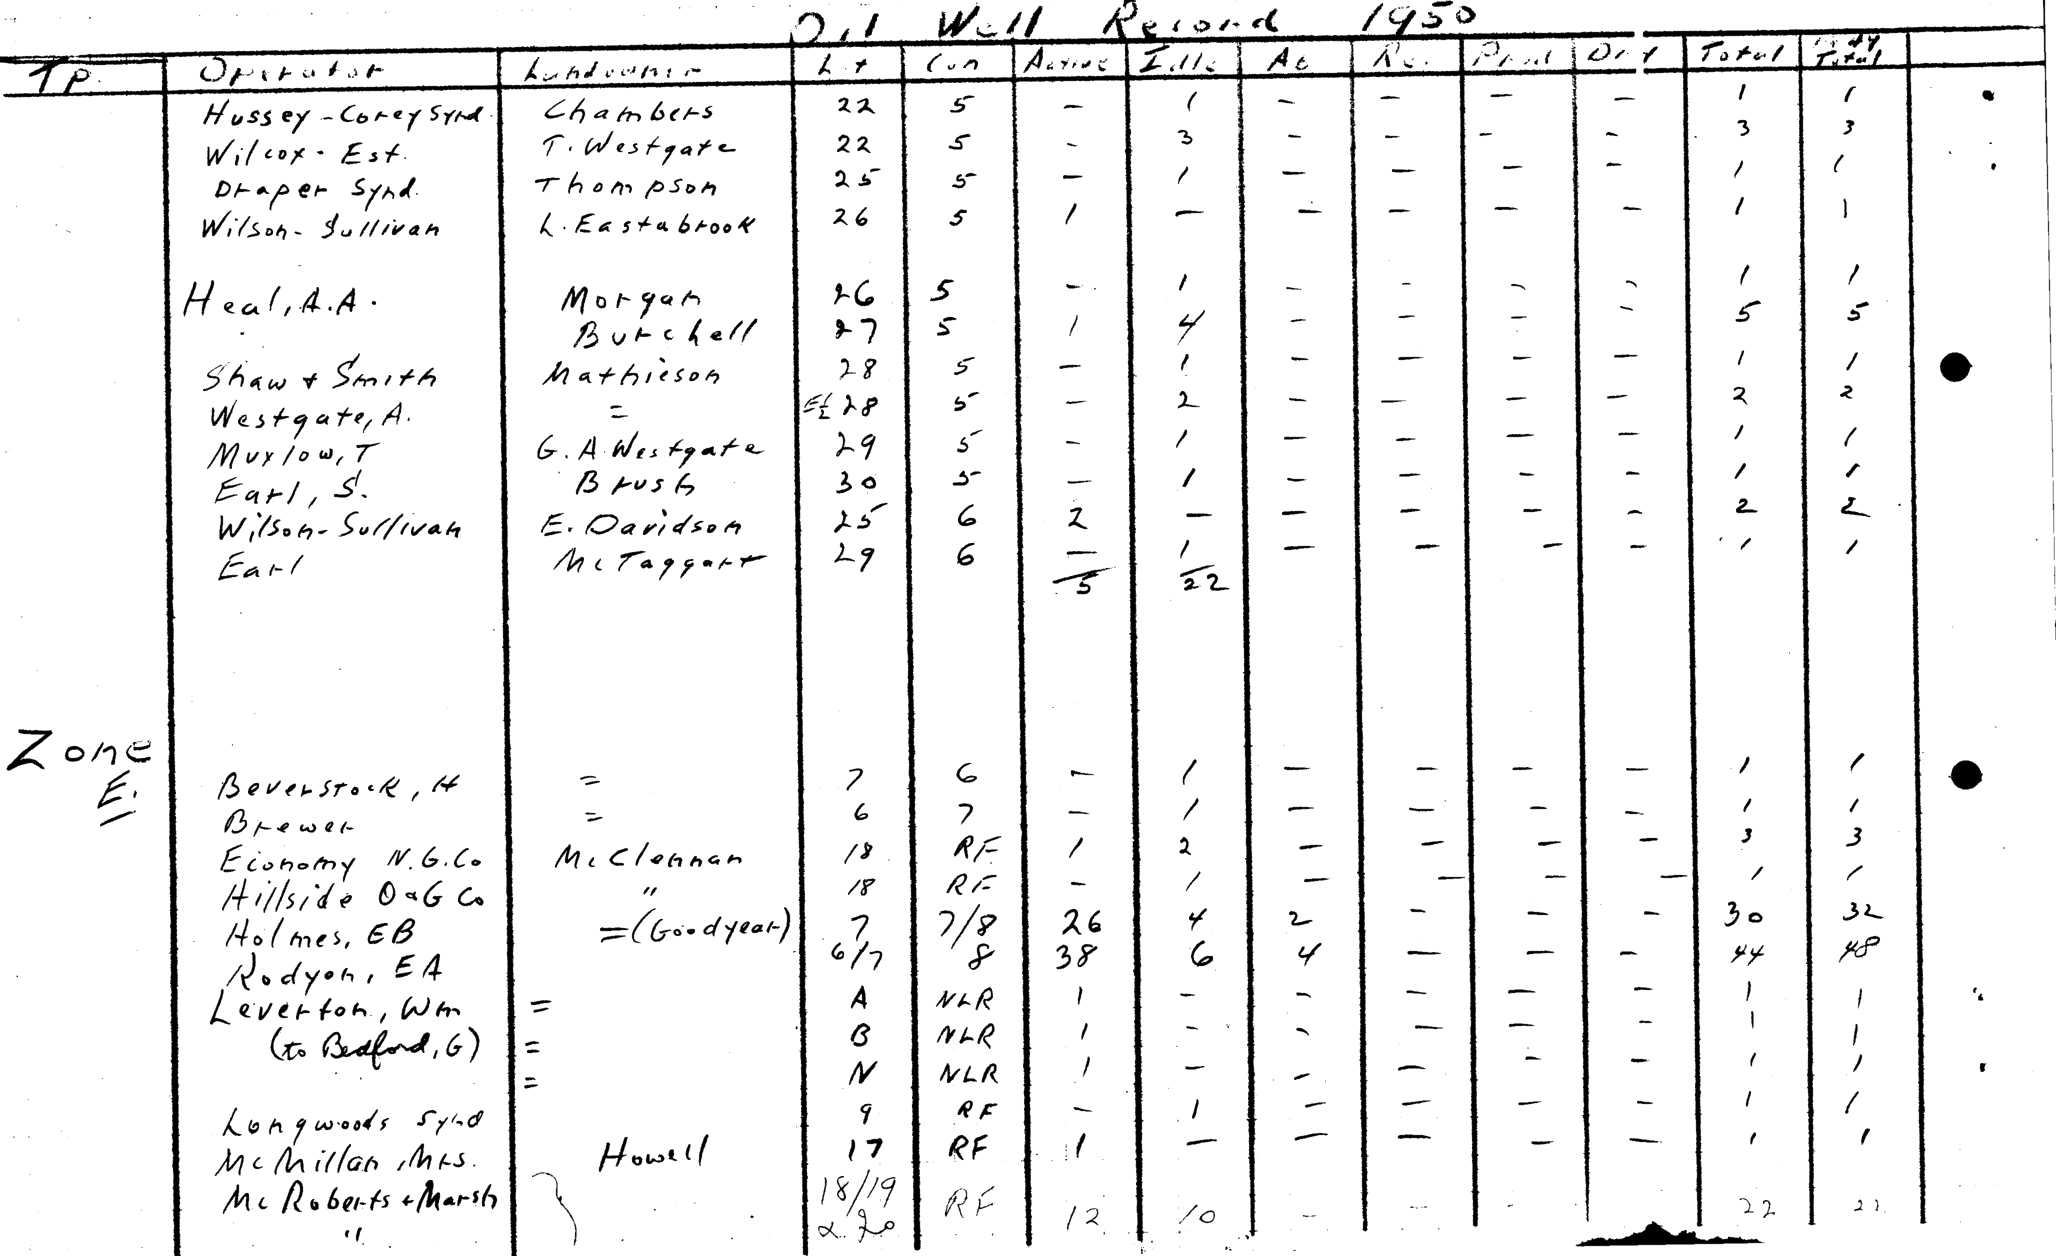 Oil Well Record 1950
Tp. Operator Landowner Lot Con Active Idle Ab Re. Prod Dry Total Total
Hussey-Corey Synd. Chambers 22 5 — 1 — — — — 1 1
Wilcox- Est. T. Westgate 22 5 - 3 - - - - 3 3
Draper Synd. Thompson 25 5 — 1 — — — — 1 1
Wilson- Sullivan L. Eastabrook 26 5 1 — — — — — 1 1
Heal, A.A. Morgan 26 5 - 1 - - - - 1 1
Burchell 27 5 1 4 - - - - 5 5
Shaw + Smith Mathieson 28 5 — 1 — — — — 1 1
Westgate, A. = E½ 28 5 — 2 — — — — 2 2
Muxlow, T G. A. Westgate 29 5 - 1 — — — — 1 1
Earl, S. Brush 30 5 — 1 — — — — 1 1
Wilson-Sullivan E. Davidson 25 6 2 — — — — - 2 2
Earl McTaggart 29 6 — 1 — — — — 1 1
5 22
Zone
E.
Beverstock, H = 7 6 — 1 — — — — 1 1
Brewer = 6 7 — 1 — — — — 1 1
Economy N.G.Co McClennan 18 RF 1 2 — — — — 3 3
Hillside O&G Co " 18 RF - 1 — — — — 1 1
Holmes, EB =(Goodyear) 7 7/8 26 4 2 - - - 30 32
Rodyon, EA 6/7 8 38 6 4 — — - 44 48
Leverton, Wm = A NLR 1 - - — — — 1 1
(to Bedford, G) = B NLR 1 - - — — — 1 1
= N NLR 1 — — — - — 1 1
Longwoods Synd 9 RF - 1 — — — — 1 1
McMillan, Mrs. Howell 17 RF 1 — — — — — 1 1
McRoberts + Marsh 18/19
" & 20 RF 12 10 - - - - 22 22